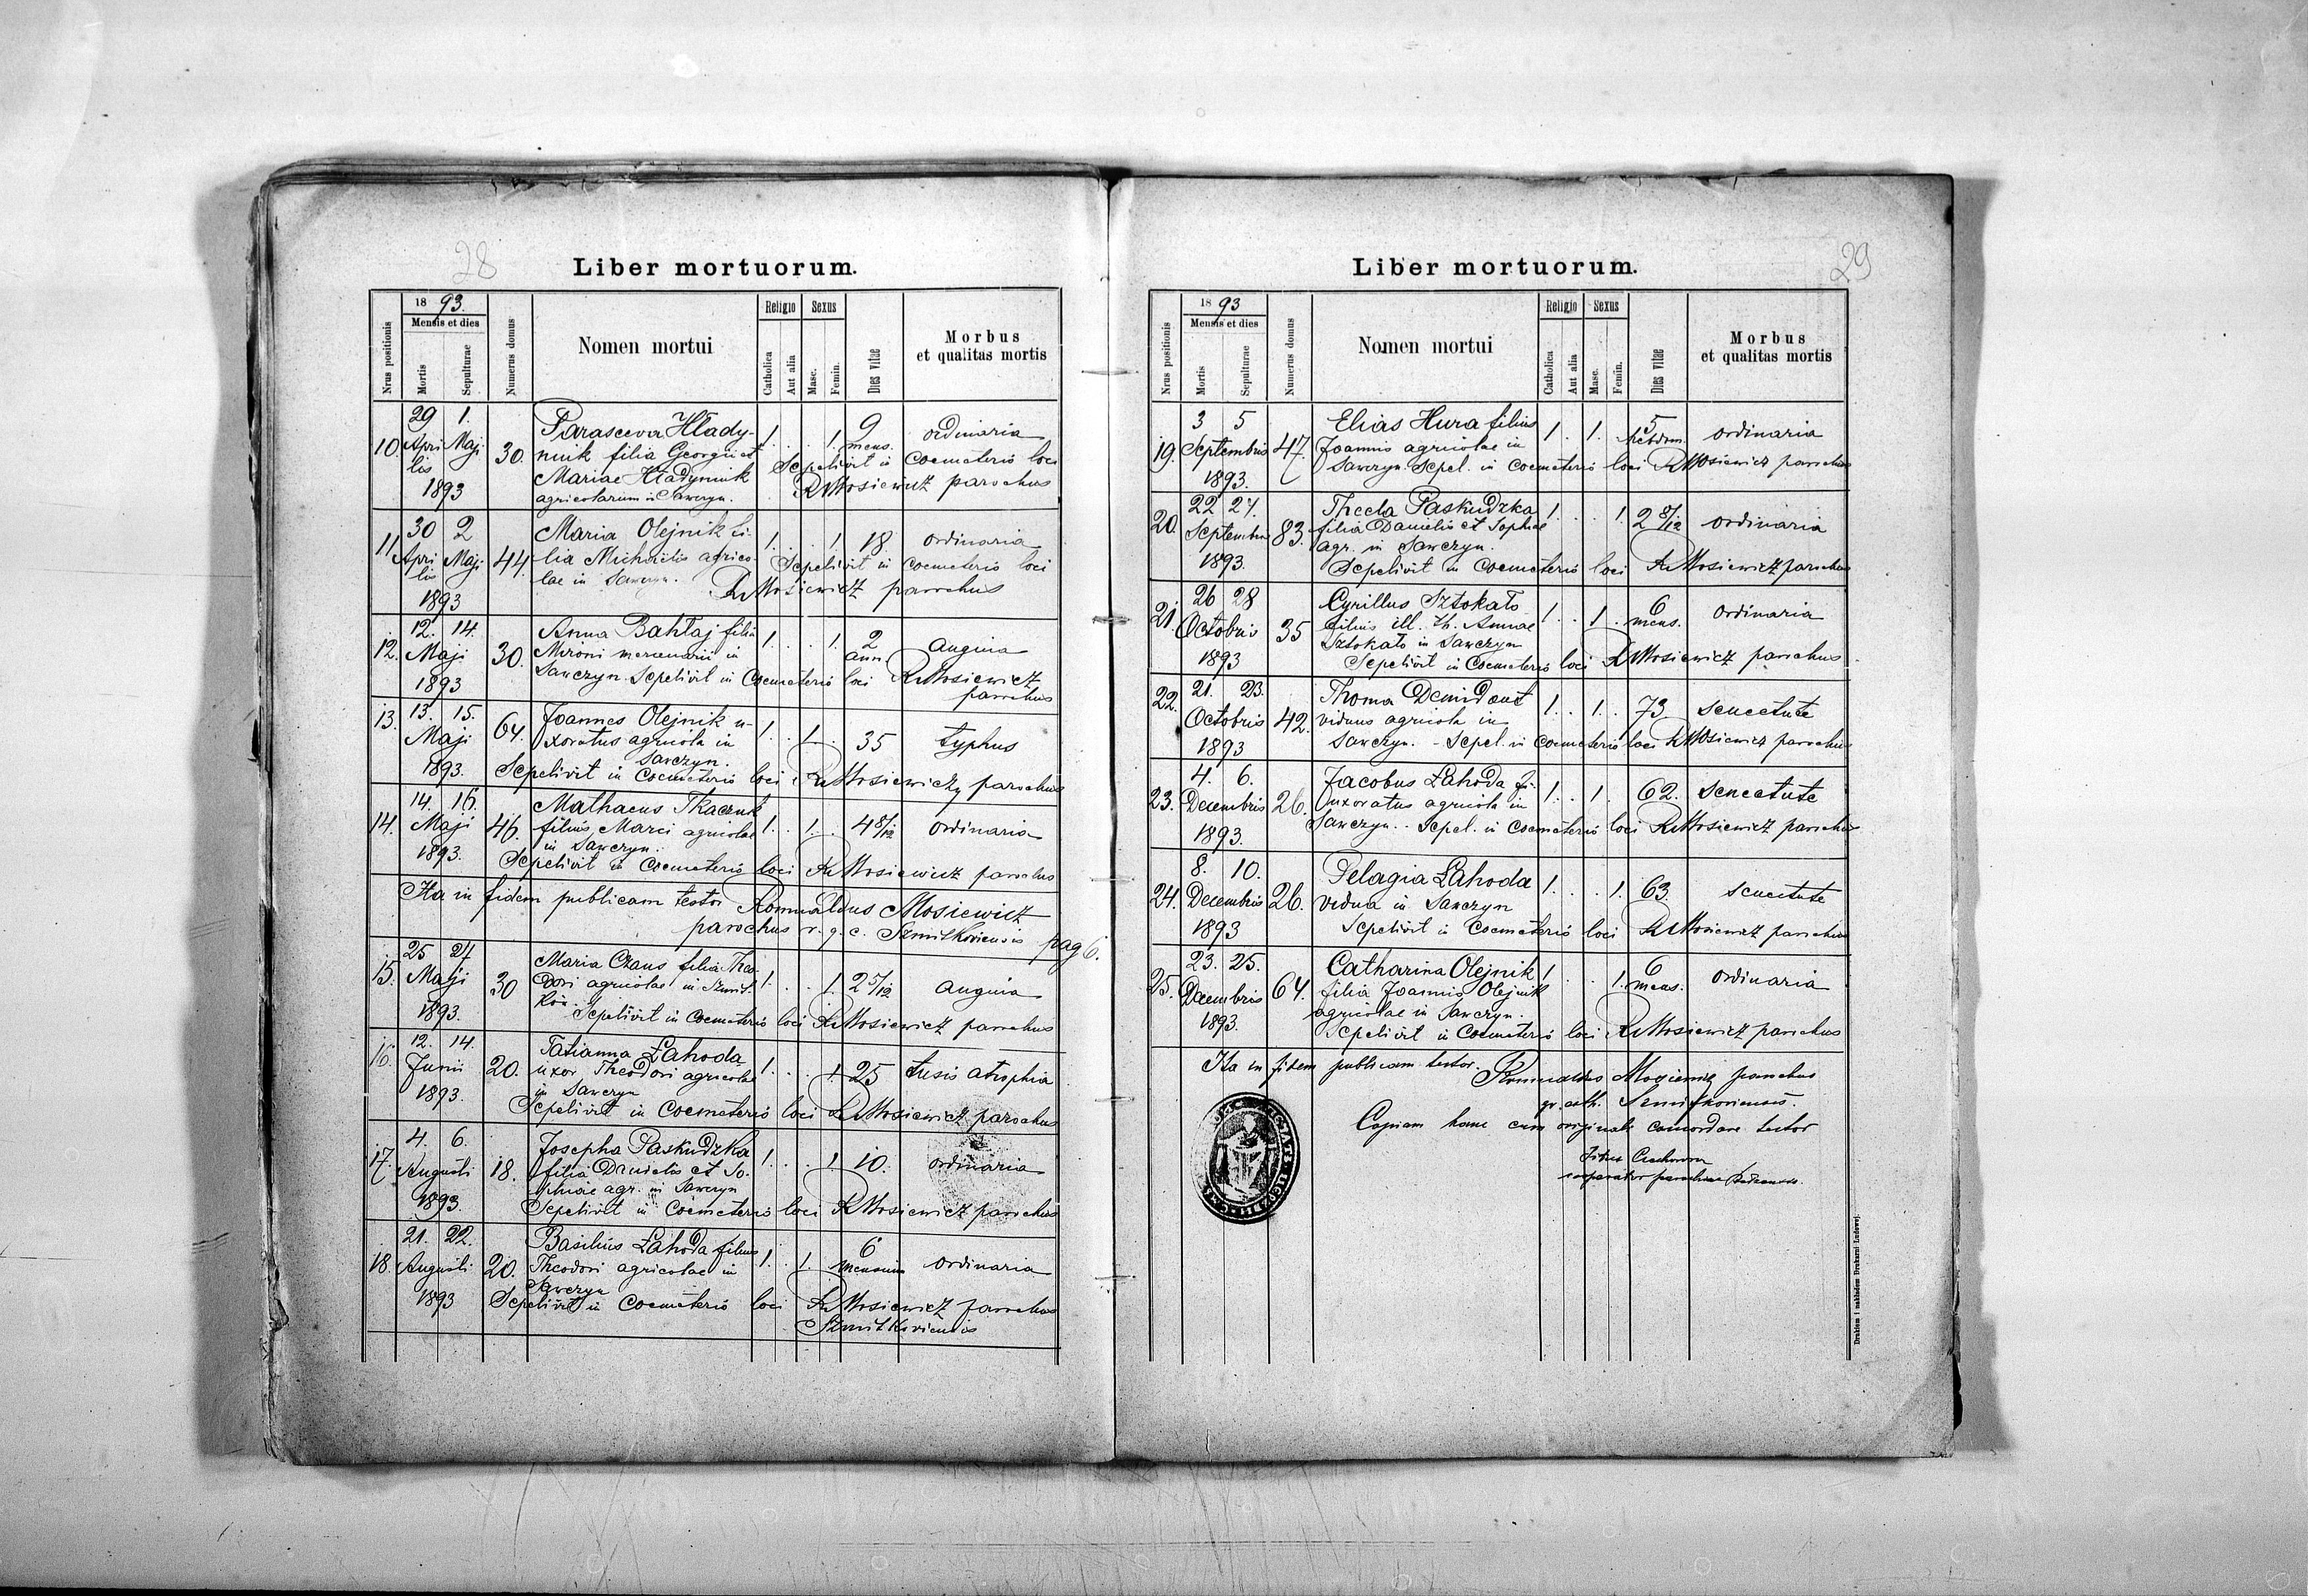 28
Liber mortuorum.
Nrus positionis
18 93.
Mensis et dies
Mortis
Sepulturae
Numerus domus
Nomen mortui
Religio
Catholica
Aut alia
Sexus
Masc.
Femin.
Dies vitae
Morbus
et qualitas mortis
10. 29 Aprilis 1. Maji 1893 30. Parasceva Hłady-
niuk filia Georgii et
Mariae Hładyniuk
agricolarum in Sawczyn.
1. 1. 9 mens. ordinaria
Sepelivit in Coemeterio loci
R Mosiewicz parochus
11. 30 Aprilis 2 Maji 1893 44. Maria Olejnik fi-
lia Michaelis agrico-
lae in Sawczyn.
1. 1. 18 ordinaria
Sepelivit in coemeterio loci
R Mosiewicz parochus
12. 12. 14. Maji 1893 30. Anna Bahtaj filia
Mironi mercenarii in
Sawczyn. Sepelivit in Coemeterio loci R Mosiewicz
parochus
1. 1. 2 ann. angina
13. 13. 15. Maji 1893. 64. Joannes Olejnik u-
xoratus agricola in
Sawczyn.
1. 1. 35 typhus
Sepelivit in Coemeterio loci R Mosiewicz parochus
14. 14. 16. Maji 1893. 46. Mathaeus Tkaczuk
filius Marci agricolae
in Sawczyn.
1. 1. 4 8/12 ordinaria
Sepelivit in Coemeterio loci R Mosiewicz parochus
Ita in fidem publicam testor Romualdus Mosiewicz
parochus r. g. c. Szmitkoviensis pag 6.
15. 25 27 Maji 1893. 30 Maria Czaus filia Theo-
dori agricolae in Szmit-
ków. Sepelivit in Coemeterio loci R Mosiewicz parochus
1. 1. 2 5/12 angina
16. 12. 14. Junii 1893. 20. Tatianna Łahoda
uxor Theodori agricolae
in Sawczyn
1. 1. 25 tusis atrophia
Sepelivit in Coemeterio loci R Mosiewicz parochus
17. 4. 6. Augusti 1893. 18. Josepha Paskudzka
filia Danielis et So-
phiae agr. in Sawczyn
1. 1 10. ordinaria
Sepelivit in Coemeterio loci R Mosiewicz parochus
18. 21. 22. Augusti 1893 20. Basilius Łahoda filius
Theodori agricolae in
Sawczyn
1. 1. 6 mensium ordinaria
Sepelivit in Coemeterio loci R Mosiewicz parochus
Szmitkoviensis
29
Liber mortuorum.
Nrus positionis
18 93
Mensis et dies
Mortis
Sepulturae
Numerus domus
Nomen mortui
Religio
Catholica
Aut alia
Sexus
Masc.
Femin.
Dies vitae
Morbus
et qualitas mortis
19. 3 5 Septembris 1893. 47. Elias Hura filius
Joannis agricolae in
Sawczyn. Sepel. in Coemeterio loci R Mosiewicz parochus
1. 1. 5 hebdom. ordinaria
20. 22 27. Septembris 1893. 83. Thecla Paskudzka
filia Danielis et Sophiae
agr. in Sawczyn.
1. 1. 2 8/12 ordinaria
Sepelivit in Coemeterio loci R Mosiewicz parochus
21. 26 28 Octobris 1893 35 Cyrillus Sztokało
filius ill. th. Annae
Sztokało in Sawczyn
1. 1. 6 mens. ordinaria
Sepelivit in Coemeterio loci R Mosiewicz parochus
22. 21. 23. Octobris 1893 42. Thoma
viduus agricola in
Sawczyn. - Sepel. in Coemeterio loci R Mosiewicz parochus
1. 1. 73 senectute
23. 4. 6. Decembris 1893. 26. Jacobus Łahoda
uxoratus agricola in
Sawczyn. - Sepel. in Coemeterio loci R Mosiewicz parochus
1. 1. 62. senectute
24. 8. 10. Decembris 1893 26. Pelagia Łahoda
vidua in Sawczyn
1. 1. 63. senectute
Sepelivit in Coemeterio loci R Mosiewicz parochus
25. 23. 25. Decembris 1893. 64. Catharina Olejnik
filia Joannis Olejnik
agricolae in Sawczyn.
1. 1. 6 mens. ordinaria
Sepelivit in Coemeterio loci R Mosiewicz parochus
Ita in fidem publicam testor. Romualdus Mosiewicz parochus
gr. cath. Szmitkoviensis.
Copiam hanc cum originali concordare testor
cooperator parochiae
Drukiem i nakładem Drukarni Ludowej.